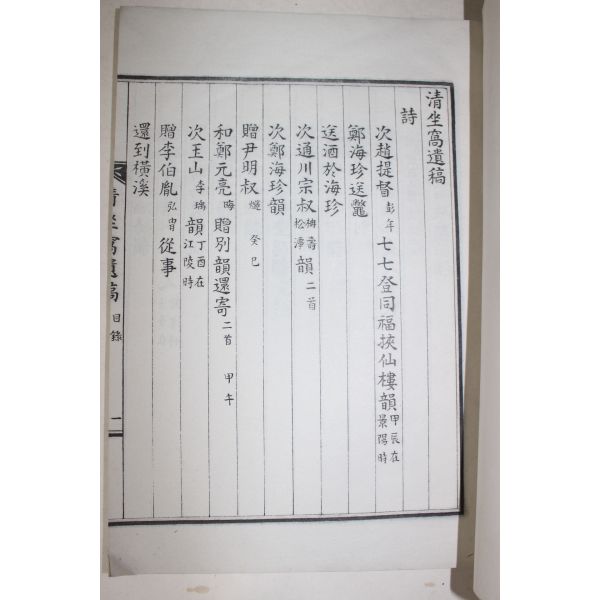 清坐窩遺稿
詩
次趙提督彭年七七登同福挾仙樓韻甲辰在景陽時
鄭海珍送鼈
送酒於海珍
次通川宗叔 松潭韻二首
次鄭海珍韻
贈尹明叔 癸巳
和鄭元亮晦贈別韻還寄二首 甲午
次王山李瑀韻丁酉在江陵時
贈李伯胤弘胄從事
還到橫溪
清坐窩遺稿 目錄 一